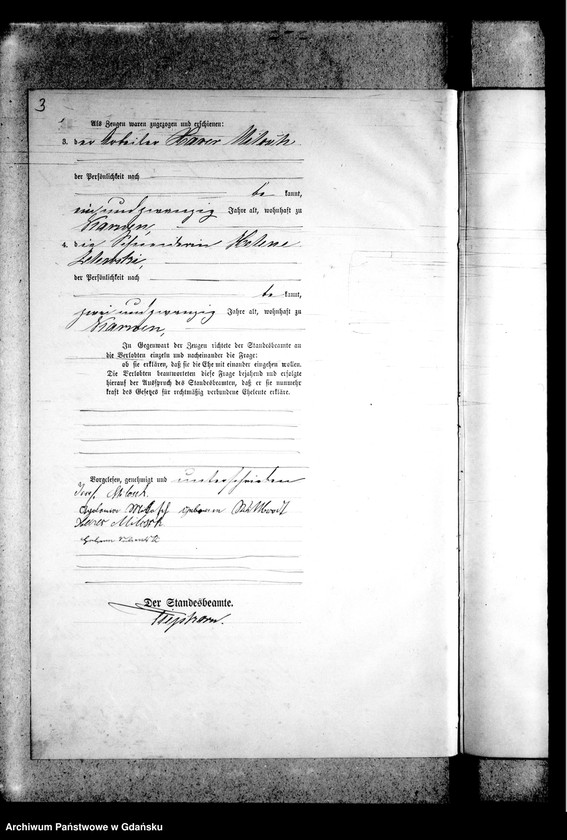 3
Als Zeugen waren zugezogen und erschienen:
3. der Arbeiter Xaver
der Persönlichkeit nach
be kannt,
ein und zwanzig Jahre alt, wohnhaft zu
4. die Schneiderin Helene
der Persönlichkeit nach
be kannt,
zwei und zwanzig Jahre alt, wohnhaft zu
In Gegenwart der Zeugen richtete der Standesbeamte an
die Verlobten einzeln und nacheinander die Frage:
ob sie erklären, daß sie die Ehe mit einander eingehen wollen.
Die Verlobten beantworteten diese Frage bejahend und erfolgte
hierauf der Ausspruch des Standesbeamten, daß er sie nunmehr
kraft des Gesetzes für rechtmäßig verbundene Eheleute erkläre.
Vorgelesen, genehmigt und unterschrieben
geboren
Der Standesbeamte.
Archiwum Państwowe w Gdańsku